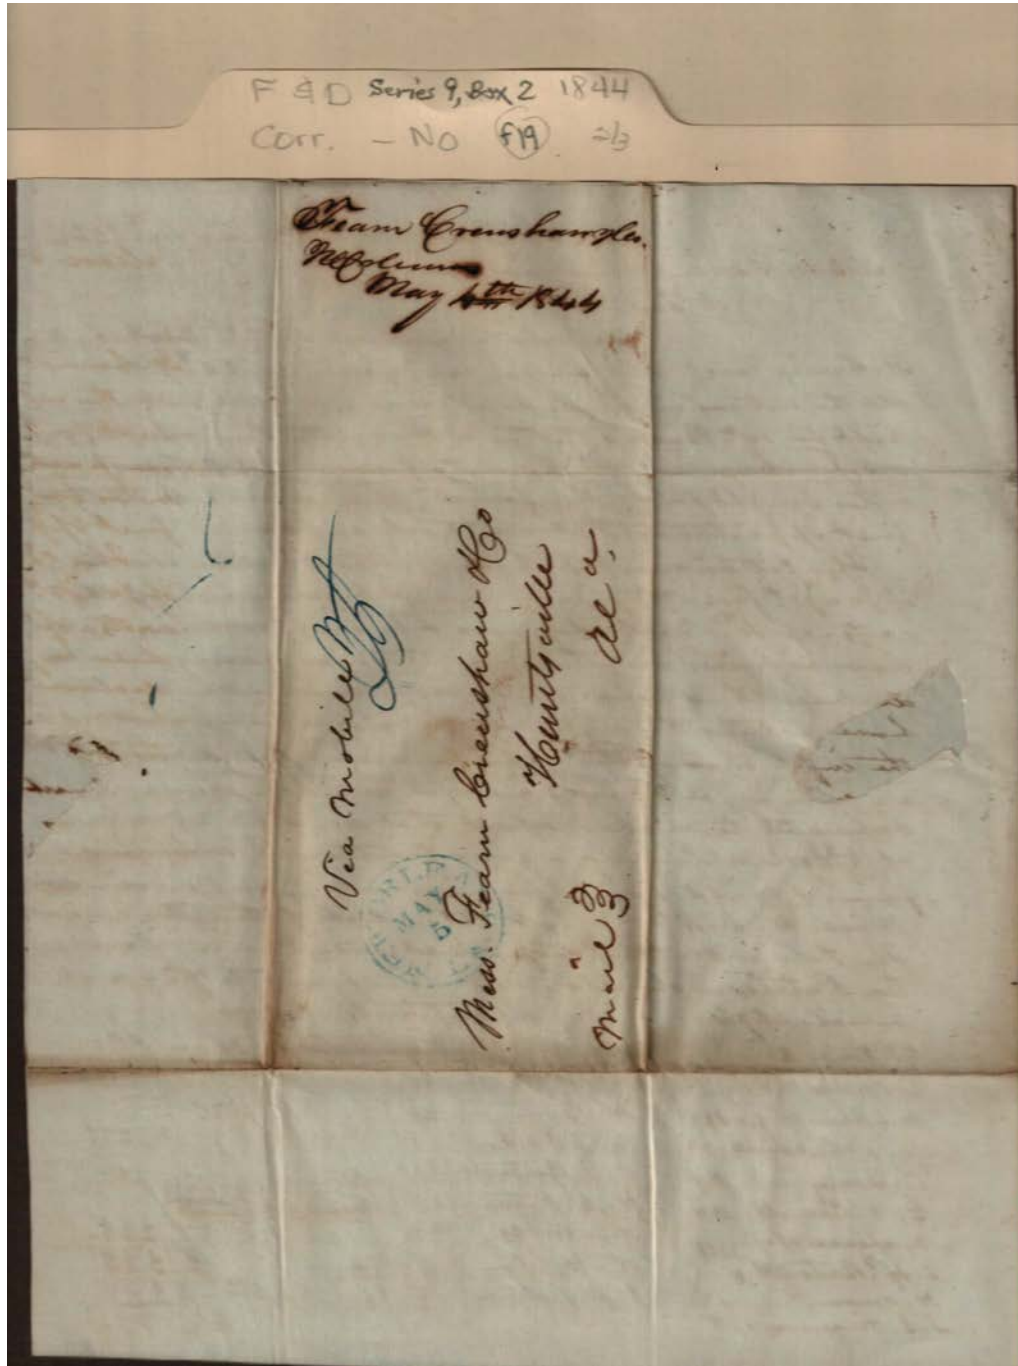 F & D Series 9, Box 2 1844
Corr. - No f19
Fearn Crenshaw & Co.
May 4th 1844
Via Mobile
Mess. Fearn Crenshaw & Co
Huntsville
Ala.
Mail
MAY
5